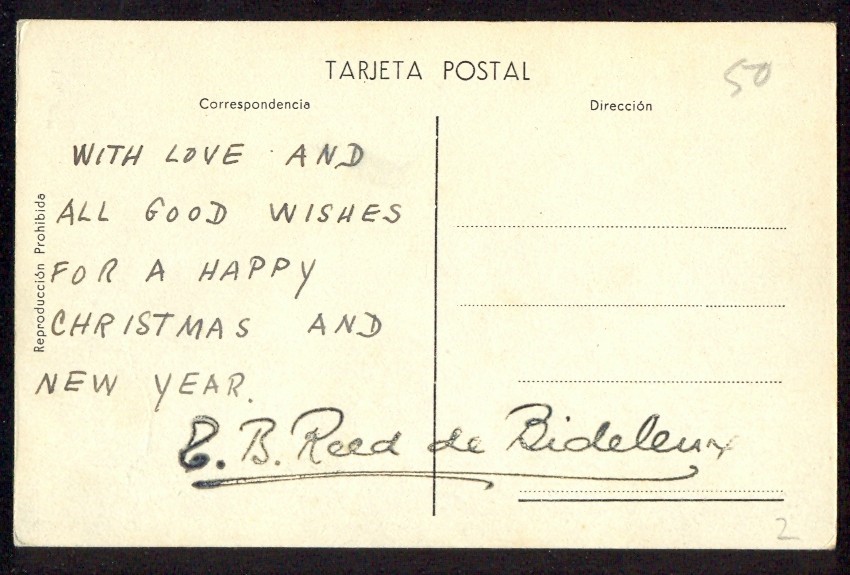 TARJETA POSTAL
50
Correspondencia
Dirección
Reproducción Prohibida
WITH LOVE AND
ALL GOOD WISHES
FOR A HAPPY
CHRISTMAS AND
NEW YEAR.
B. Reed de Bideleux
2